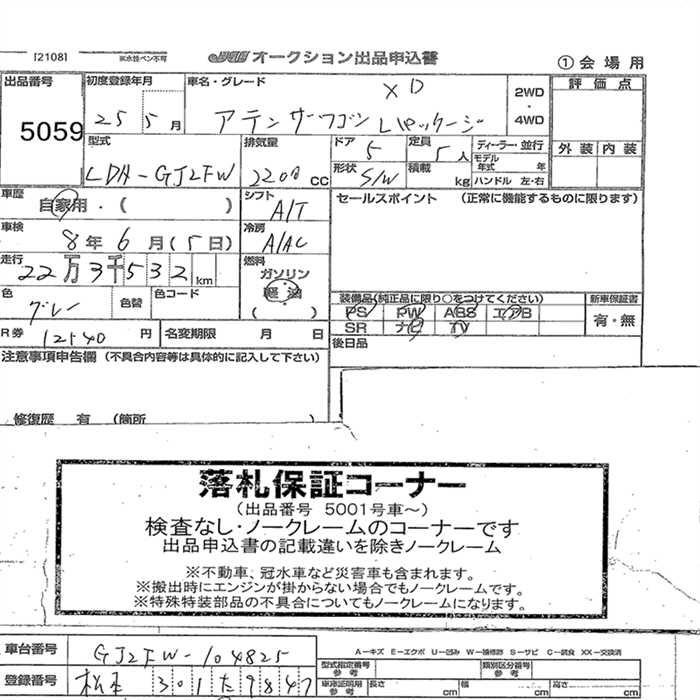 [2108]
※水性ペン不可
オークション出品申込書
①会場用
出品番号
5059
初度登録年月
25 5月
車名・グレード
XD
アテンザワゴン Lパッケージ
2WD
・
4WD
評価点
外装 内装
型式
LDA-GJ2FW
排気量
2200 cc
ドア
5
定員
5人
ディーラー・並行
モデル年式 年
形状
S/W
積載
kg
ハンドル 左・右
車歴
自家用・( )
シフト
A/T
セールスポイント (正常に機能するものに限ります)
車検
8年6月(5日)
冷房
A/AC
走行
22万3千532km
燃料
ガソリン
軽油
( )
色
グレー
色替
色コード
装備品(純正品に限り○をつけてください)
新車保証書
PS PW ABS エアB
有・無
SR ナビ TV
R券
12540円
名変期限 月 日
後日品
注意事項申告欄 (不具合内容等は具体的に記入して下さい)
修復歴 有 (箇所 )
落札保証コーナー
(出品番号 5001号車～)
検査なし・ノークレームのコーナーです
出品申込書の記載違いを除きノークレーム
※不動車、冠水車など災害車も含まれます。
※搬出時にエンジンが掛からない場合でもノークレームです。
※特殊特装部品の不具合についてもノークレームになります。
車台番号
GJ2FW-104825
A－キズ E－エクボ U－凹み W－補修跡 S－サビ C－腐食 XX－交換済
型式指定番号
参考
類別区分番号
参考
登録番号
松本 301 9847
車庫証明用
参考
長さ cm
幅 cm
高さ cm